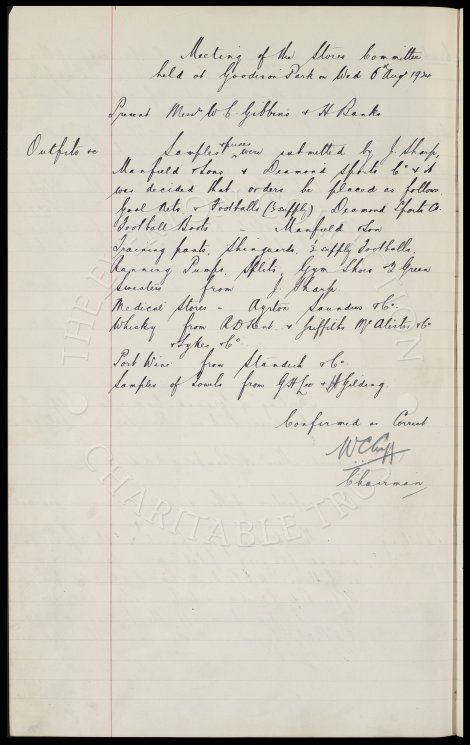 Meeting of the Stores Committee
held at Goodison Park on Wed 6th Augt 1924
Present Messrs W C Gibbins & H Banks
Outfits &c
Samples & prices were submitted by J. Sharp,
Manfield & Sons & Deamond Sports Co & it
was decided that orders be placed as follows
Goal Nets, & Footballs (½ supply), Deamond Sports Co.
Football Boots - Manfield & Son
Training pants, Shinguards, ½ supply Footballs,
Running Pumps, Splits, Gym Shoes & Green
Sweaters from J. Sharp.
Medical Stores - Ayrton Saunders & Co.
Whisky from R D Kent & Griffiths McAlister, & Co
& Sykes & Co.
Port Wine from Standish & Co.
Samples of Towels from G H Lee & H Gilding.
Confirmed as Correct
W C Cuff
Chairman
CHARITABLE TRUST